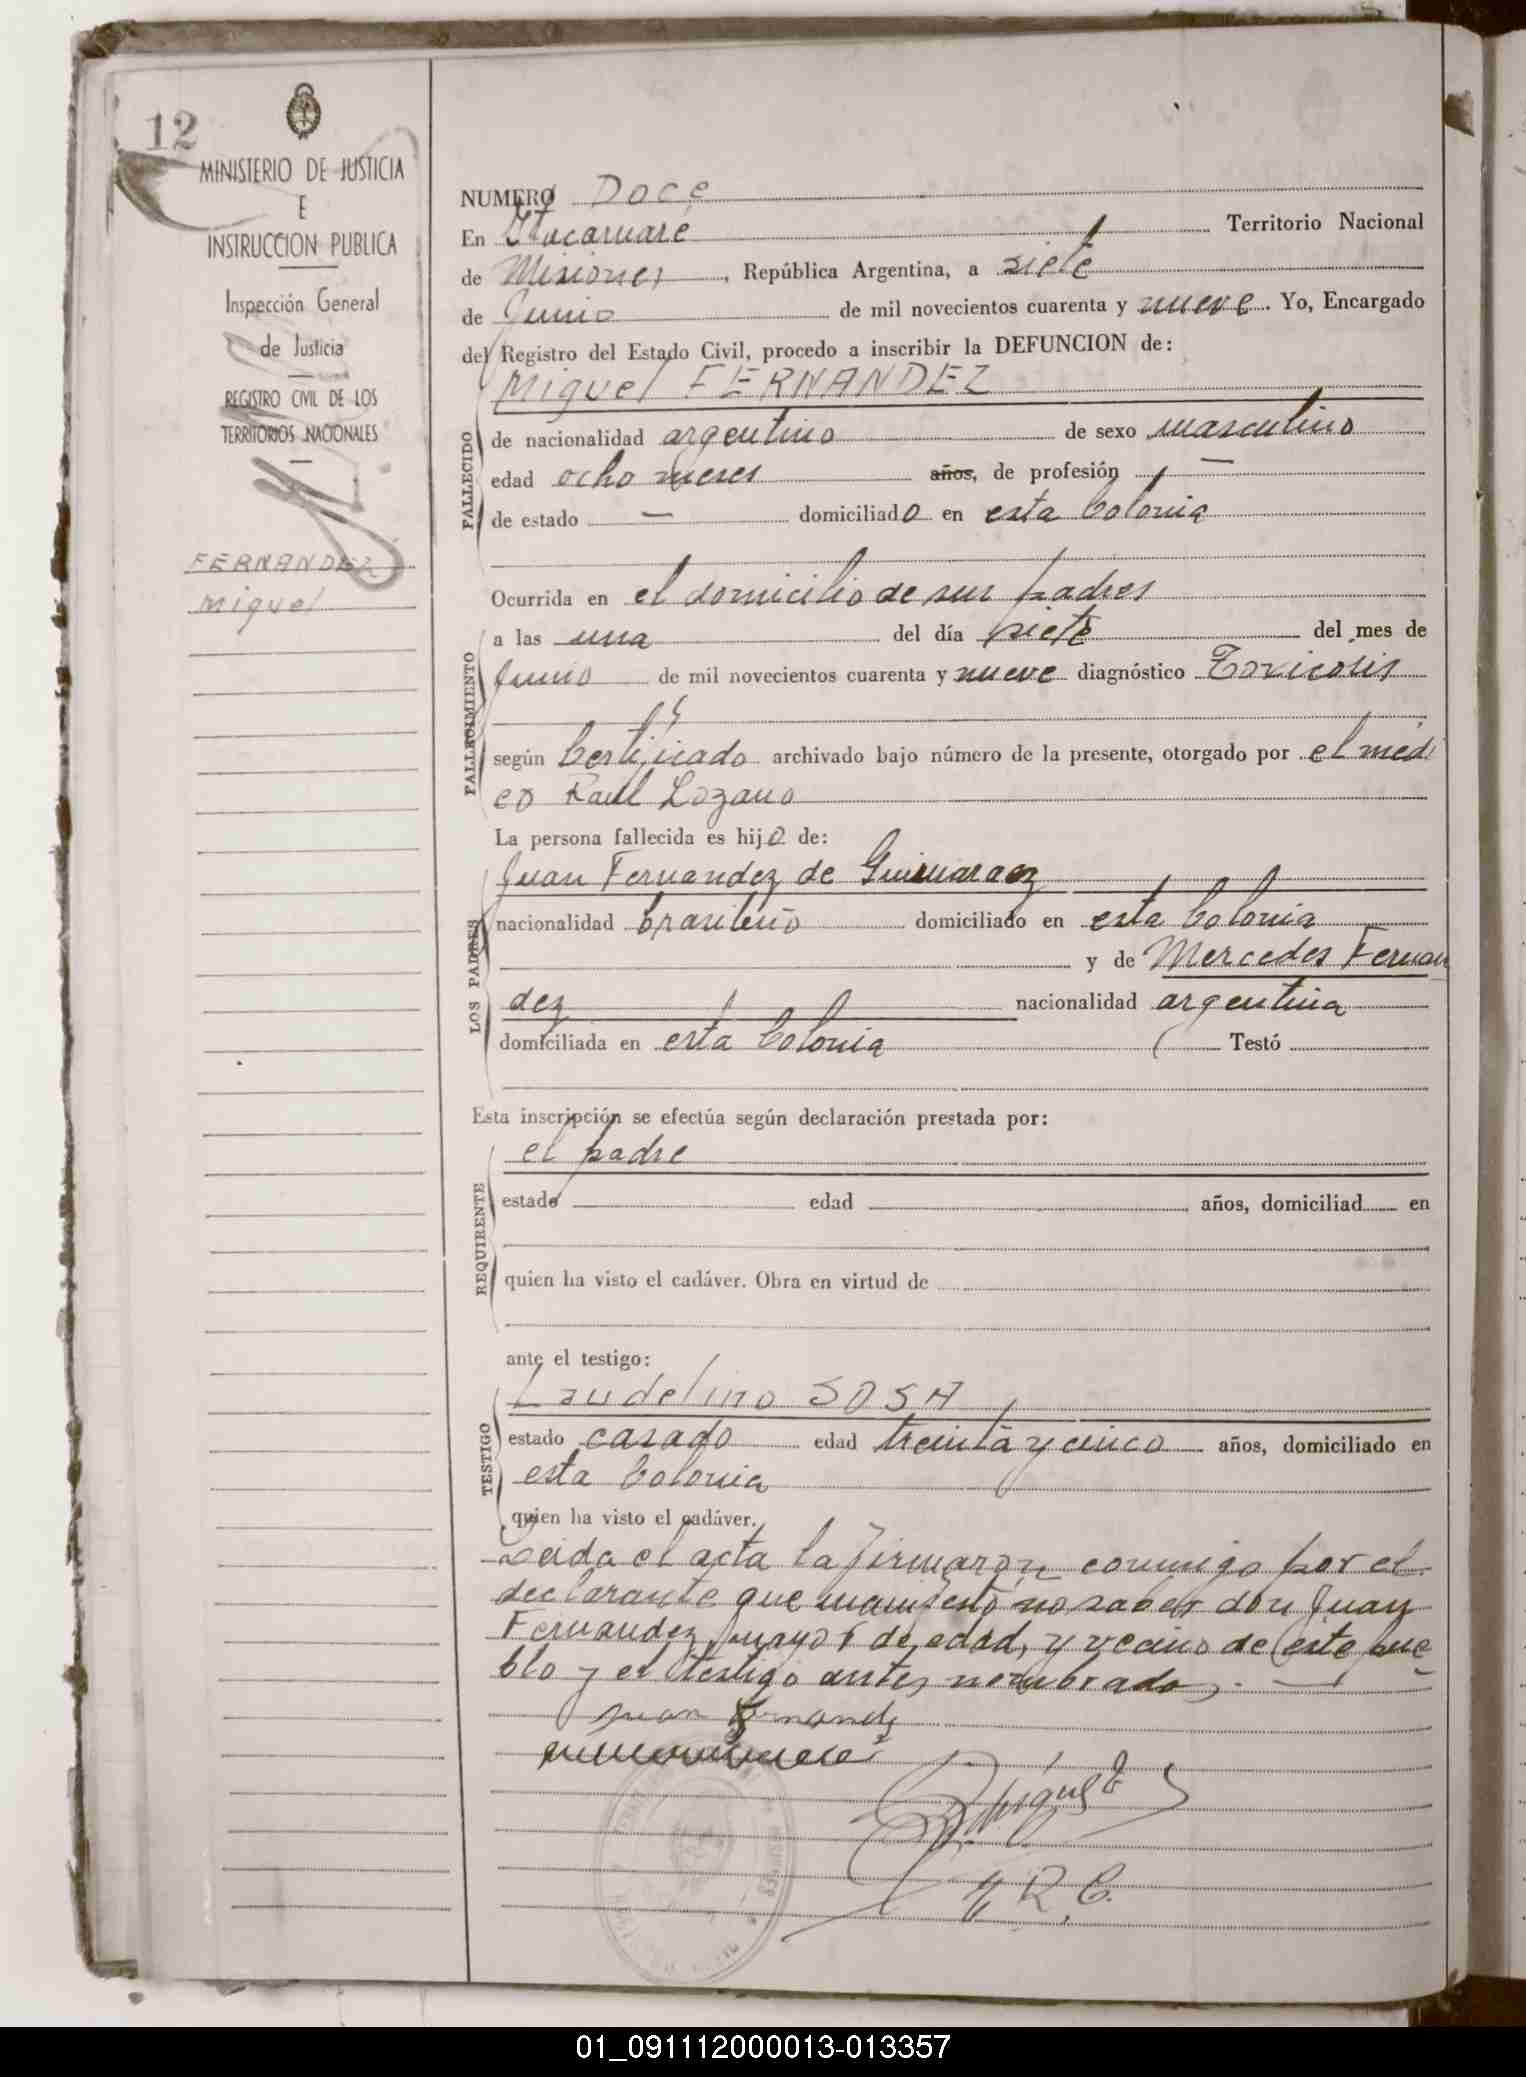 12
MINISTERIO DE JUSTICIA
E
INSTRUCCION PUBLICA
Inspección General
de Justicia
REGISTRO CIVIL DE LOS
TERRITORIOS NACIONALES
FERNANDEZ
Miguel
NUMERO Doce
En Itacaruaré Territorio Nacional
de Misiones, República Argentina, a siete
de Junio de mil novecientos cuarenta y nueve. Yo, Encargado
del Registro del Estado Civil, procedo a inscribir la DEFUNCION de:
Miguel FERNANDEZ
FALLECIDO
de nacionalidad argentino de sexo masculino
edad ocho meses años, de profesión —
de estado — domiciliado en esta Colonia
FALLECIMIENTO
Ocurrida en el domicilio de sus padres
a las una del día siete del mes de
Junio de mil novecientos cuarenta y nueve diagnóstico Toxicosis
según Certificado archivado bajo número de la presente, otorgado por el médi
co Raul Lozano
La persona fallecida es hijo de:
LOS PADRES
Juan Fernandez de Guimaraez
nacionalidad brasileño domiciliado en esta Colonia
y de Mercedes Fernan
dez nacionalidad argentina
domiciliada en esta Colonia Testó
Esta inscripción se efectúa según declaración prestada por:
REQUIRENTE
el padre
estado edad años, domiciliad en
quien ha visto el cadáver. Obra en virtud de
ante el testigo:
TESTIGO
Laudelino SOSA
estado casado edad treinta y cinco años, domiciliado en
esta Colonia
quien ha visto el cadáver.
Leida el acta la firmaron conmigo por el
declarante que manifestó no saber don Juan
Fernandez, mayor de edad, y vecino de este pue
blo y el testigo antes nombrado.—
Juan Fernandez
E. R. C.
01_091112000013-013357